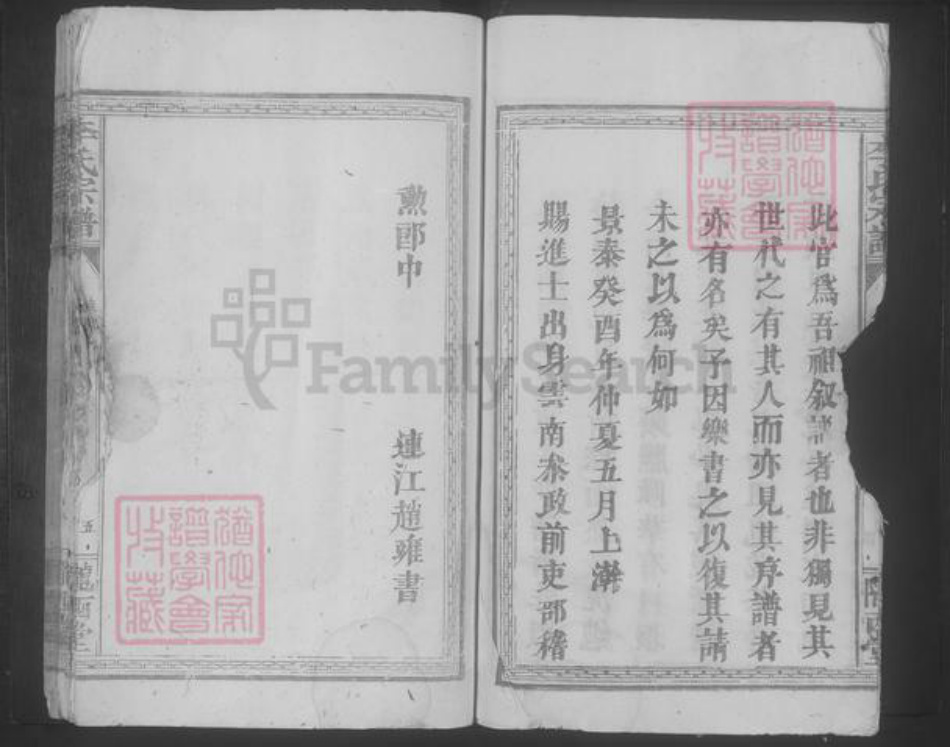 此官為吾祖叙譜者也非獨見其
世代之有其人而亦見其序譜者
亦有名矣予因樂書之以復其請
未之以為何如
景泰癸酉年仲夏五月上澣
賜進士出身雲南叅政前吏部稽
勲郎中
連江趙雍書
李氏宗譜
五
隴西堂
李氏宗譜
隴西堂
譜學會
收藏
譜學會
收藏
FamilySearch